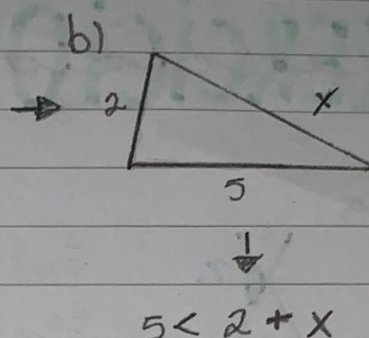 b)
2
x
5
5 < 2 + x